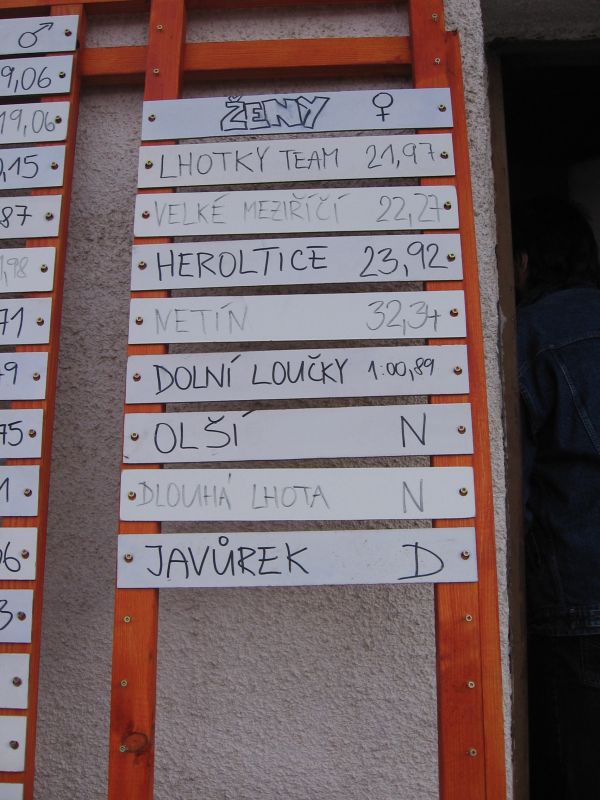 ♂
9,06
19,06
0,15
87
1,98
71
49
75
1
06
3
ŽENY ♀
LHOTKY TEAM 21,97
VELKÉ MEZIŘÍČÍ 22,27
HEROLTICE 23,92
NETÍN 32,34
DOLNÍ LOUČKY 1:00,89
OLŠÍ N
DLOUHÁ LHOTA N
JAVŮREK D